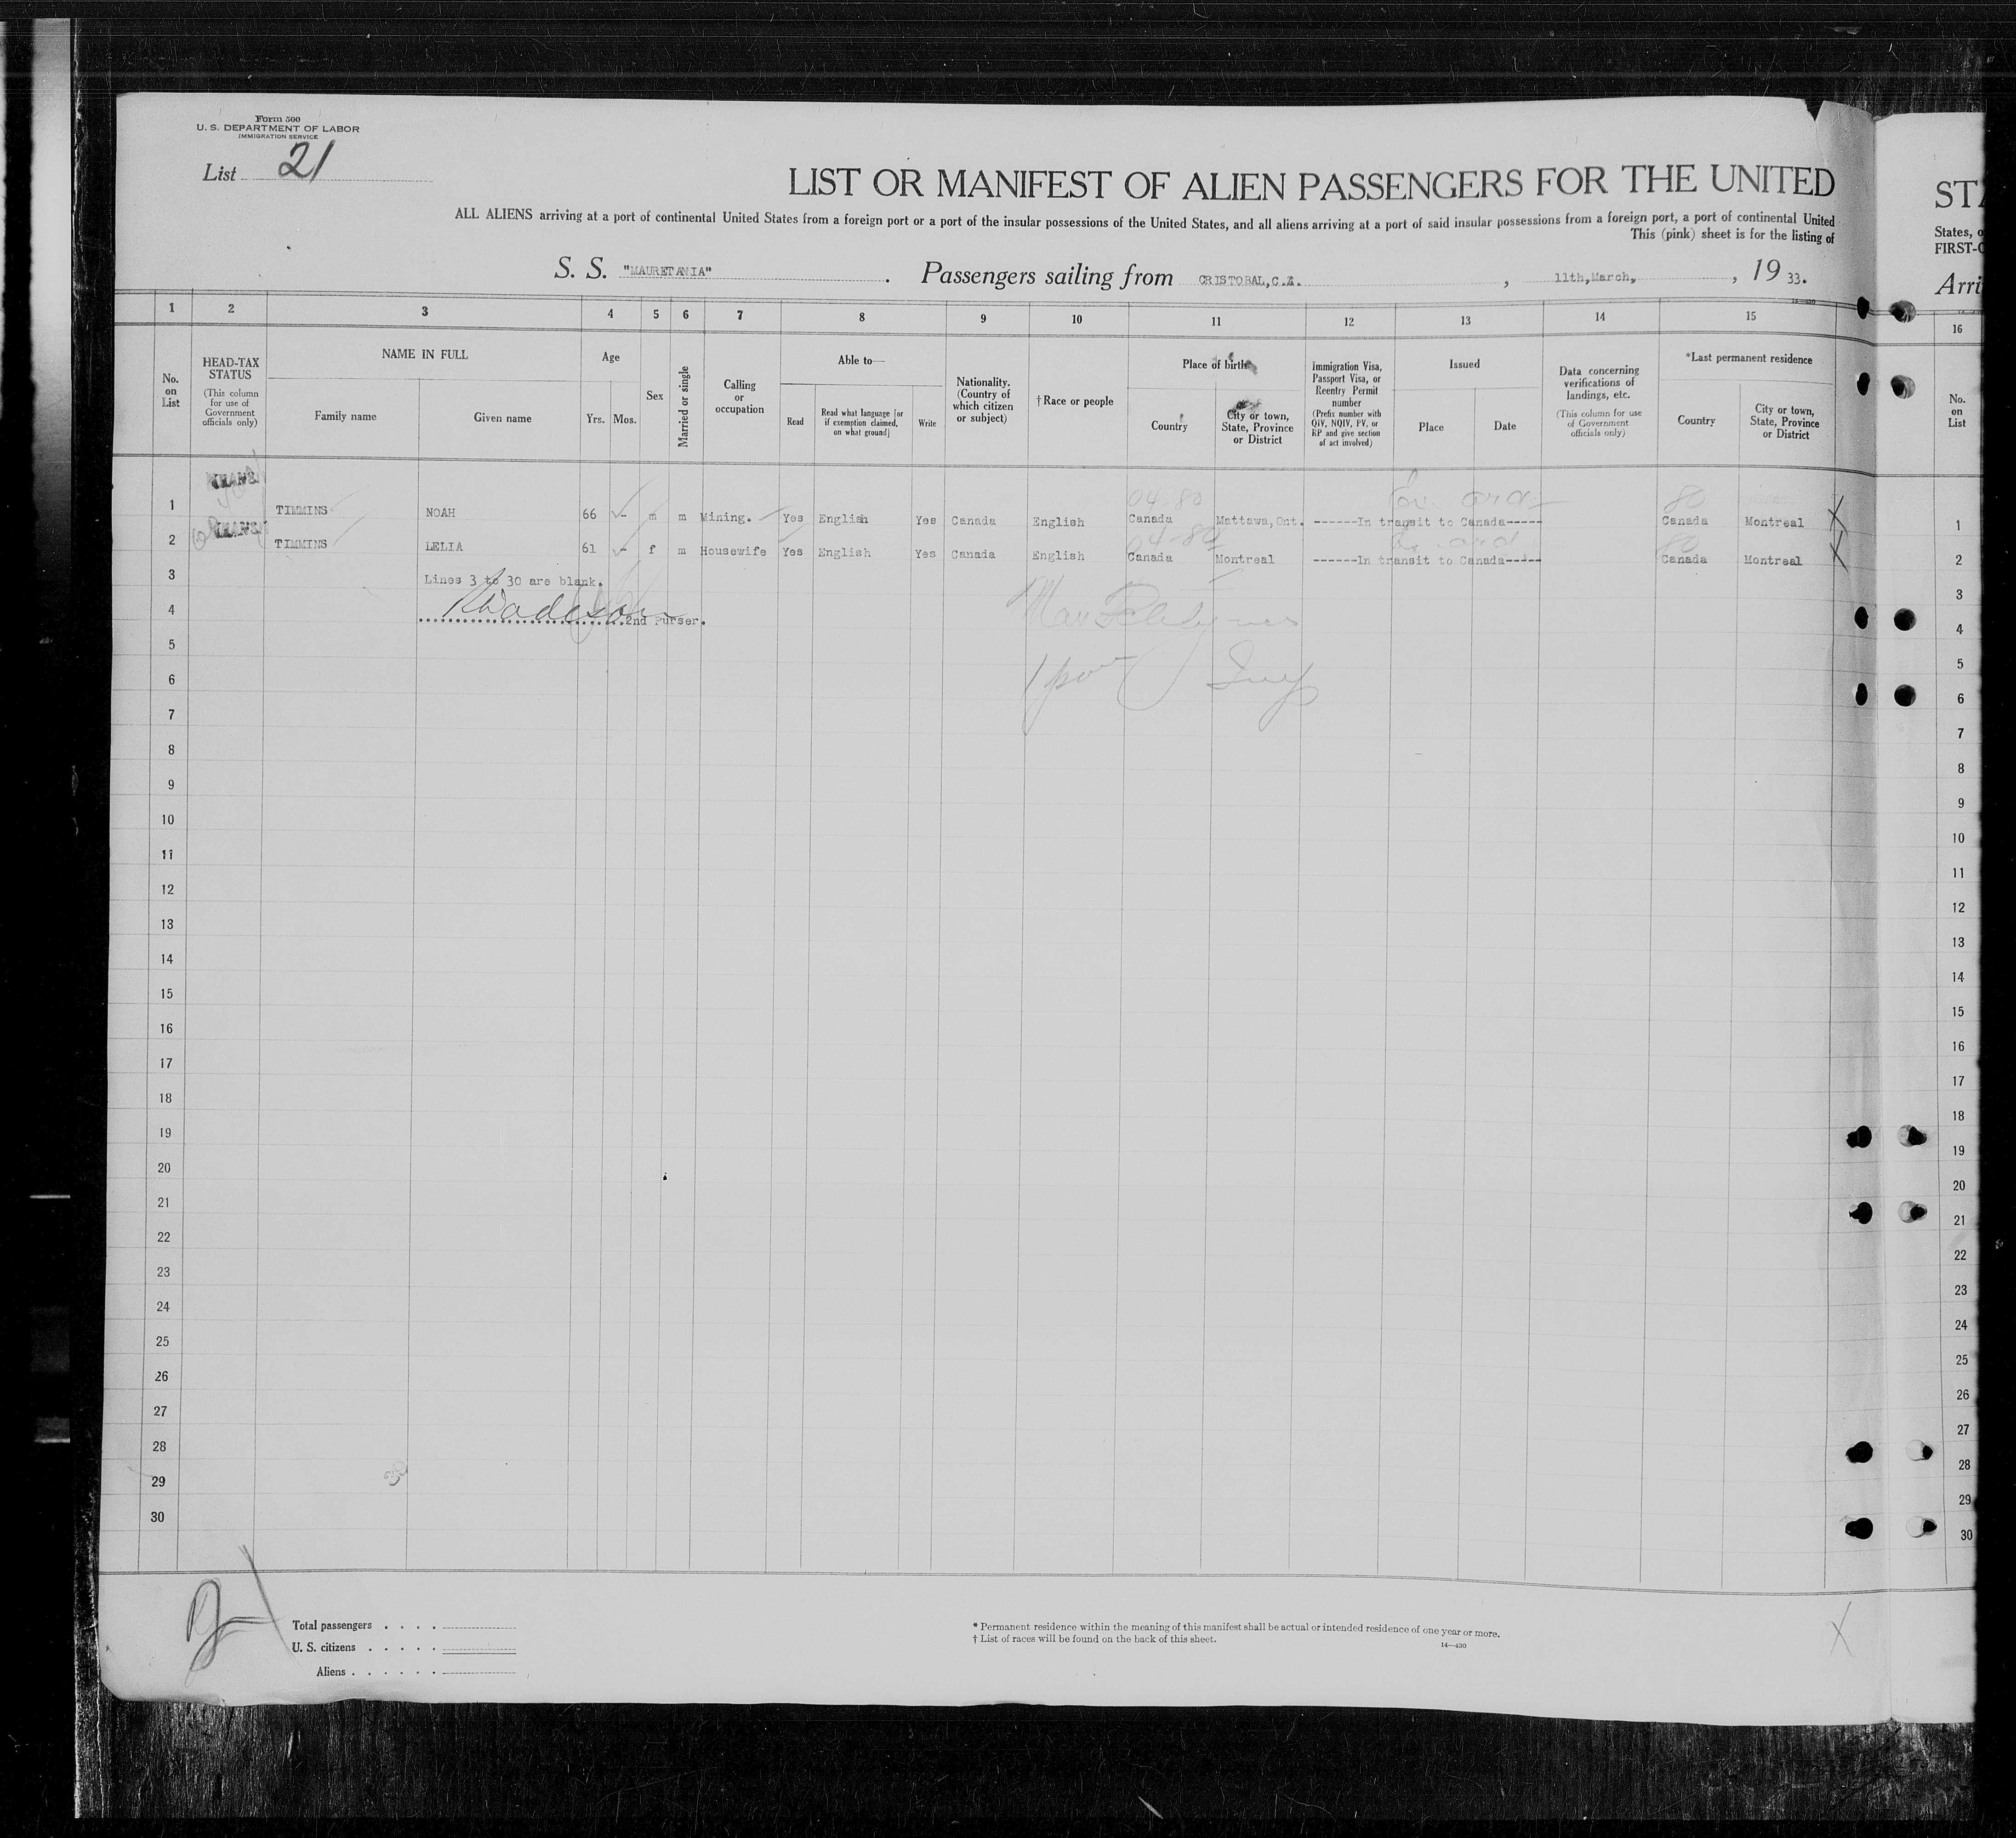 Form 500
U. S. DEPARTMENT OF LABOR
IMMIGRATION SERVICE
List 21
LIST OR MANIFEST OF ALIEN PASSENGERS FOR THE UNITED
STA
ALL ALIENS arriving at a port of continental United States from a foreign port or a port of the insular possessions of the United States, and all aliens arriving at a port of said insular possessions from a foreign port, a port of continental United
States, o
This (pink) sheet is for the listing of
FIRST-C
S. S. "MAURETANIA". Passengers sailing from CRISTOBAL, C.Z. , 11th, March, , 19 33.
Arri
1 2 3 4 5 6 7 8 9 10 11 12 13 14 15 16
No. on List
HEAD-TAX STATUS (This column for use of Government officials only)
NAME IN FULL
Family name Given name
Age
Yrs. Mos.
Sex
Married or single
Calling or occupation
Able to—
Read Read what language [or if exemption claimed, on what ground] Write
Nationality. (Country of which citizen or subject)
†Race or people
Place of birth
Country City or town, State, Province or District
Immigration Visa, Passport Visa, or Reentry Permit number (Prefix number with QIV, NQIV, PV, or RP and give section of act involved)
Issued
Place Date
Data concerning verifications of landings, etc. (This column for use of Government officials only)
*Last permanent residence
Country City or town, State, Province or District
No. on List
TRANS
04-80 80
1 TIMMINS NOAH 66 - m m Mining. Yes English Yes Canada English Canada Mattawa, Ont. ------In transit to Canada----- Canada Montreal X 1
TRANS
04-80 80
2 TIMMINS LELIA 61 - f m Housewife Yes English Yes Canada English Canada Montreal ------In transit to Canada----- Canada Montreal X 2
3 Lines 3 to 30 are blank. 3
4 2nd Purser. 4
5 5
6 6
7 7
8 8
9 9
10 10
11 11
12 12
13 13
14 14
15 15
16 16
17 17
18 18
19 19
20 20
21 21
22 22
23 23
24 24
25 25
26 26
27 27
28 28
29 30 29
30 30
Total passengers . . . .
U. S. citizens . . . . .
Aliens . . . . . .
* Permanent residence within the meaning of this manifest shall be actual or intended residence of one year or more.
† List of races will be found on the back of this sheet.
14—430
X